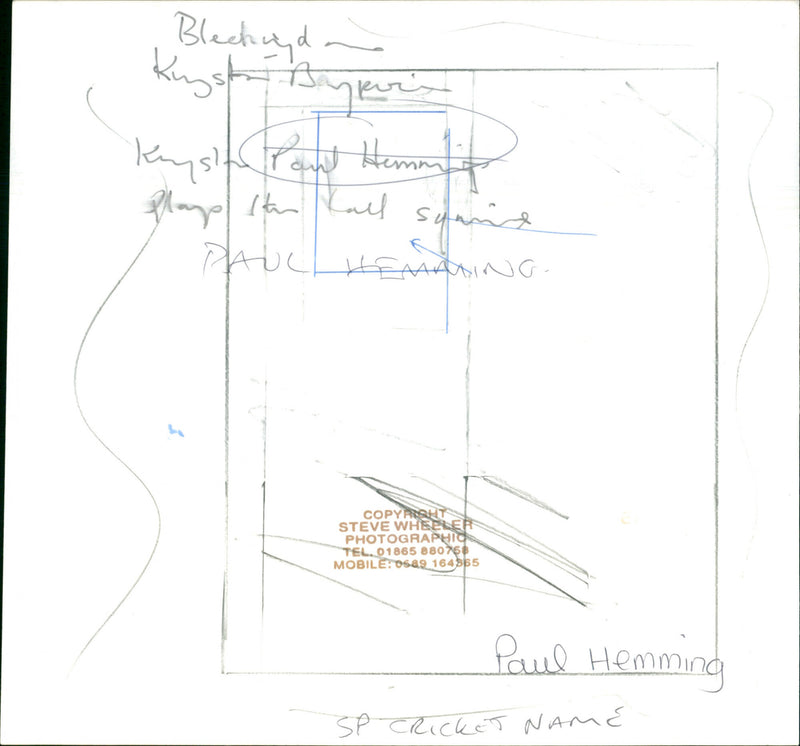 Kingston
Kingston Paul Hemming
plays
PAUL HEMMING.
COPYRIGHT
STEVE WHEELER
PHOTOGRAPHIC
TEL. 01865 880758
MOBILE: 0589 164365
Paul Hemming
SP CRICKET NAME